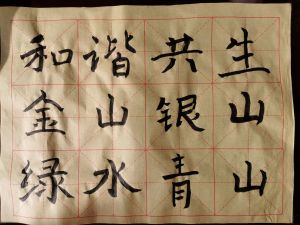 和谐共生
金山银山
绿水青山